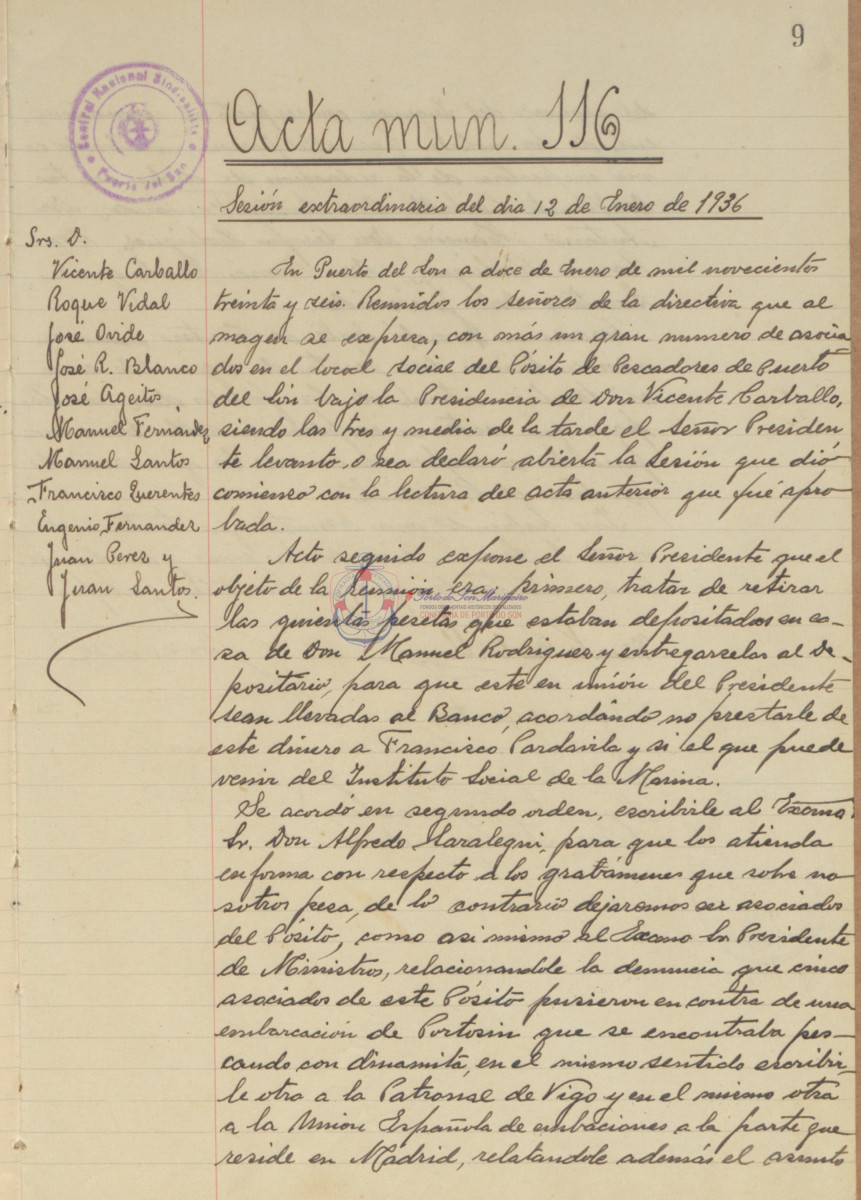 9
Central Nacional Sindicalista
Puerto del Son
Acta núm. 116
Sesión extraordinaria del dia 12 de Enero de 1936
Srs. D.
Vicente Carballo
Roque Vidal
José Ovide
José R. Blanco
José Ageitos
Manuel Fernández
Manuel Santos
Francisco Querentes
Eugenio Fernandez
Juan Perez y
Juan Santos.
En Puerto del Son a doce de Enero de mil novecientos
treinta y seis. Reunidos los señores de la directiva que al
magen se expresa, con más un gran numero de asocia
dos en el local social del Pósito de Pescadores de Puerto
del Són bajo la Presidencia de Don Vicente Carballo,
siendo las tres y media de la tarde el Señor Presiden
te levanto, o sea declaró abierta la Sesión que dió
comienso con la lectura del acta anterior que fué apro
bada.
Acto seguido expone el Señor Presidente que el
objeto de la reunión era; primero, tratar de retirar
las quientas pesetas que estaban depositadas en ca-
sa de Don Manuel Rodriguez y entregarselas al De-
positario, para que este en unión del Presidente
sean llevadas al Banco, acordándo no prestarle de
este dinero a Francisco Pardavila y si el que puede
venir del Instituto Social de la Marina.
Se acordó en segundo orden, escribirle al Excmo
Sr. Don Alfredo Saralegui, para que los atienda
en forma con respecto a los grabámenes que sobre no
sotros pesa, de lo contrario dejaremos ser asociados
del Pósito, como asi mismo al Excmo Sr Presidente
de Ministros, relacionandole la denuncia que cinco
asociados de este Pósito pusieron en contra de una
embarcación de Portosin que se encontraba pes-
cando con dinamita, en el mismo sentido escribir-
le otra a la Patronal de Vigo y en el mismo otra
a la Unión Española de embaciones a la parte que
reside en Madrid, relatandole además el asunto
Porto do Son Mariñeiro
FONDOS DOCUMENTAIS HISTÓRICOS DIXITALIZADOS
CONFRARÍA DE PORTO DO SON